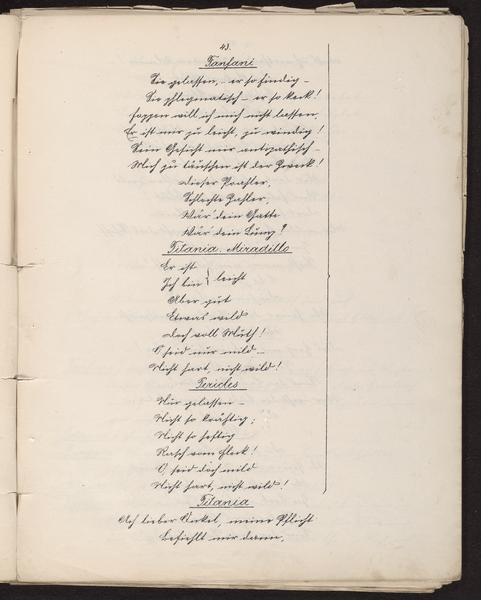 43.
Fanfani
Sie gelassen, – er so hündig –
Sie phlegmatisch – er so keck!
foppen will ich mich nicht lassen,
Er ist mir zu leicht, zu windig!
Sein Gesicht mir antipathisch –
Mich zu täuschen ist der Zweck!
Dieser Prahler,
Schlechte Zahler,
Wär' dein Gatte
Wär' dein Lump?
Titania. Miradillo
Er ist
Ich bin } leicht
Aber gut
Etwas wild
Doch voll Muth!
O seid nur mild –
Nicht hart, nicht wild!
Pericles
Nur gelassen –
Nicht so kräftig;
Nicht so heftig
Rasch vom Fleck!
O, seid doch mild
Nicht hart, nicht wild!
Titania
Ach lieber Onkel, meine Pflicht
Befiehlt mir dann,